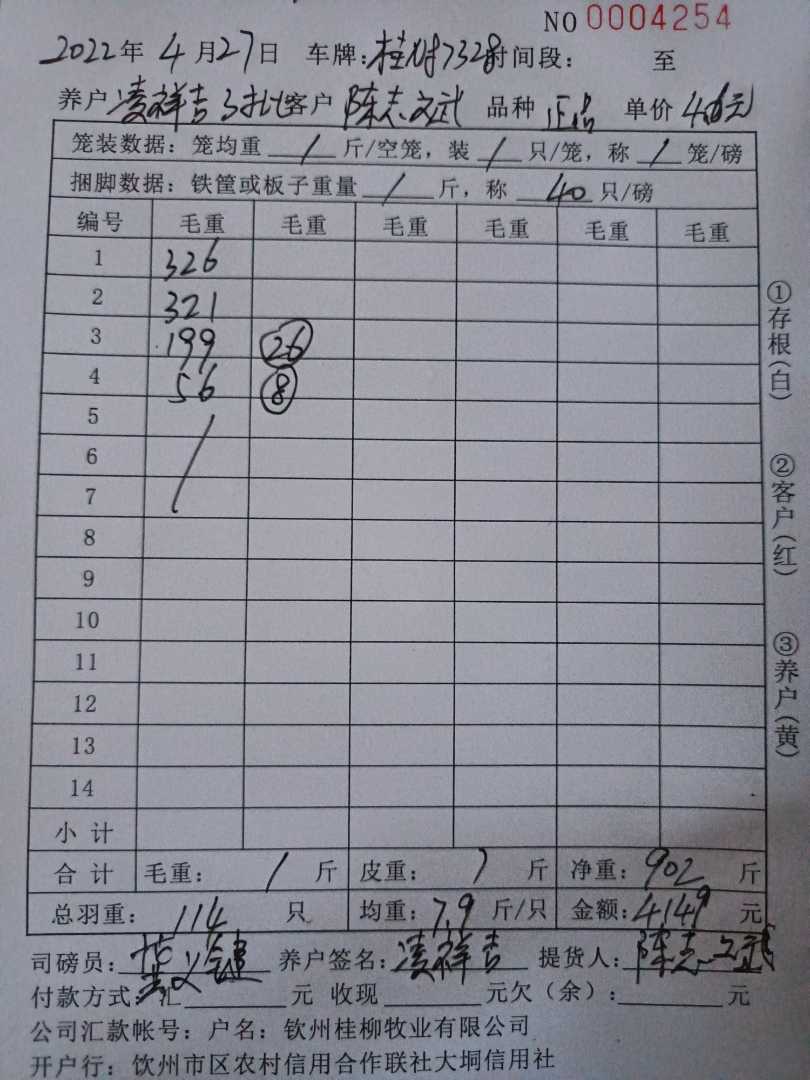 NO 0004254
2022年 4月27日 车牌: 7328 时间段: 至
养户 凌祥吉 3批 客户 陈志斌 品种 正品 单价 4.6元
笼装数据: 笼均重 / 斤/空笼, 装 / 只/笼, 称 / 笼/磅
捆脚数据: 铁筐或板子重量 / 斤, 称 40 只/磅
编号 毛重 毛重 毛重 毛重 毛重 毛重
1 326
2 321
3 199 26
4 56 8
5
6
7
8
9
10
11
12
13
14
小计
合计 毛重: / 斤 皮重: / 斤 净重: 902 斤
总羽重: 114 只 均重: 7.9 斤/只 金额: 4149 元
司磅员: 养户签名: 凌祥吉 提货人: 陈志斌
付款方式: 汇 元 收现 元欠(余): 元
公司汇款帐号: 户名: 钦州桂柳牧业有限公司
开户行: 钦州市区农村信用合作联社大垌信用社
①存根(白)
②客户(红)
③养户(黄)